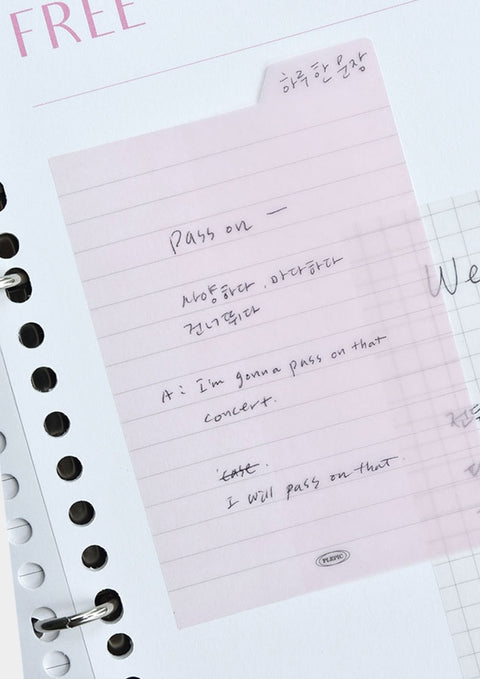 FREE
하루 한 문장
pass on —
사양하다, 마다하다
건너뛰다
A: I'm gonna pass on that
concert.
case.
I will pass on that.
PLEPIC
We
전